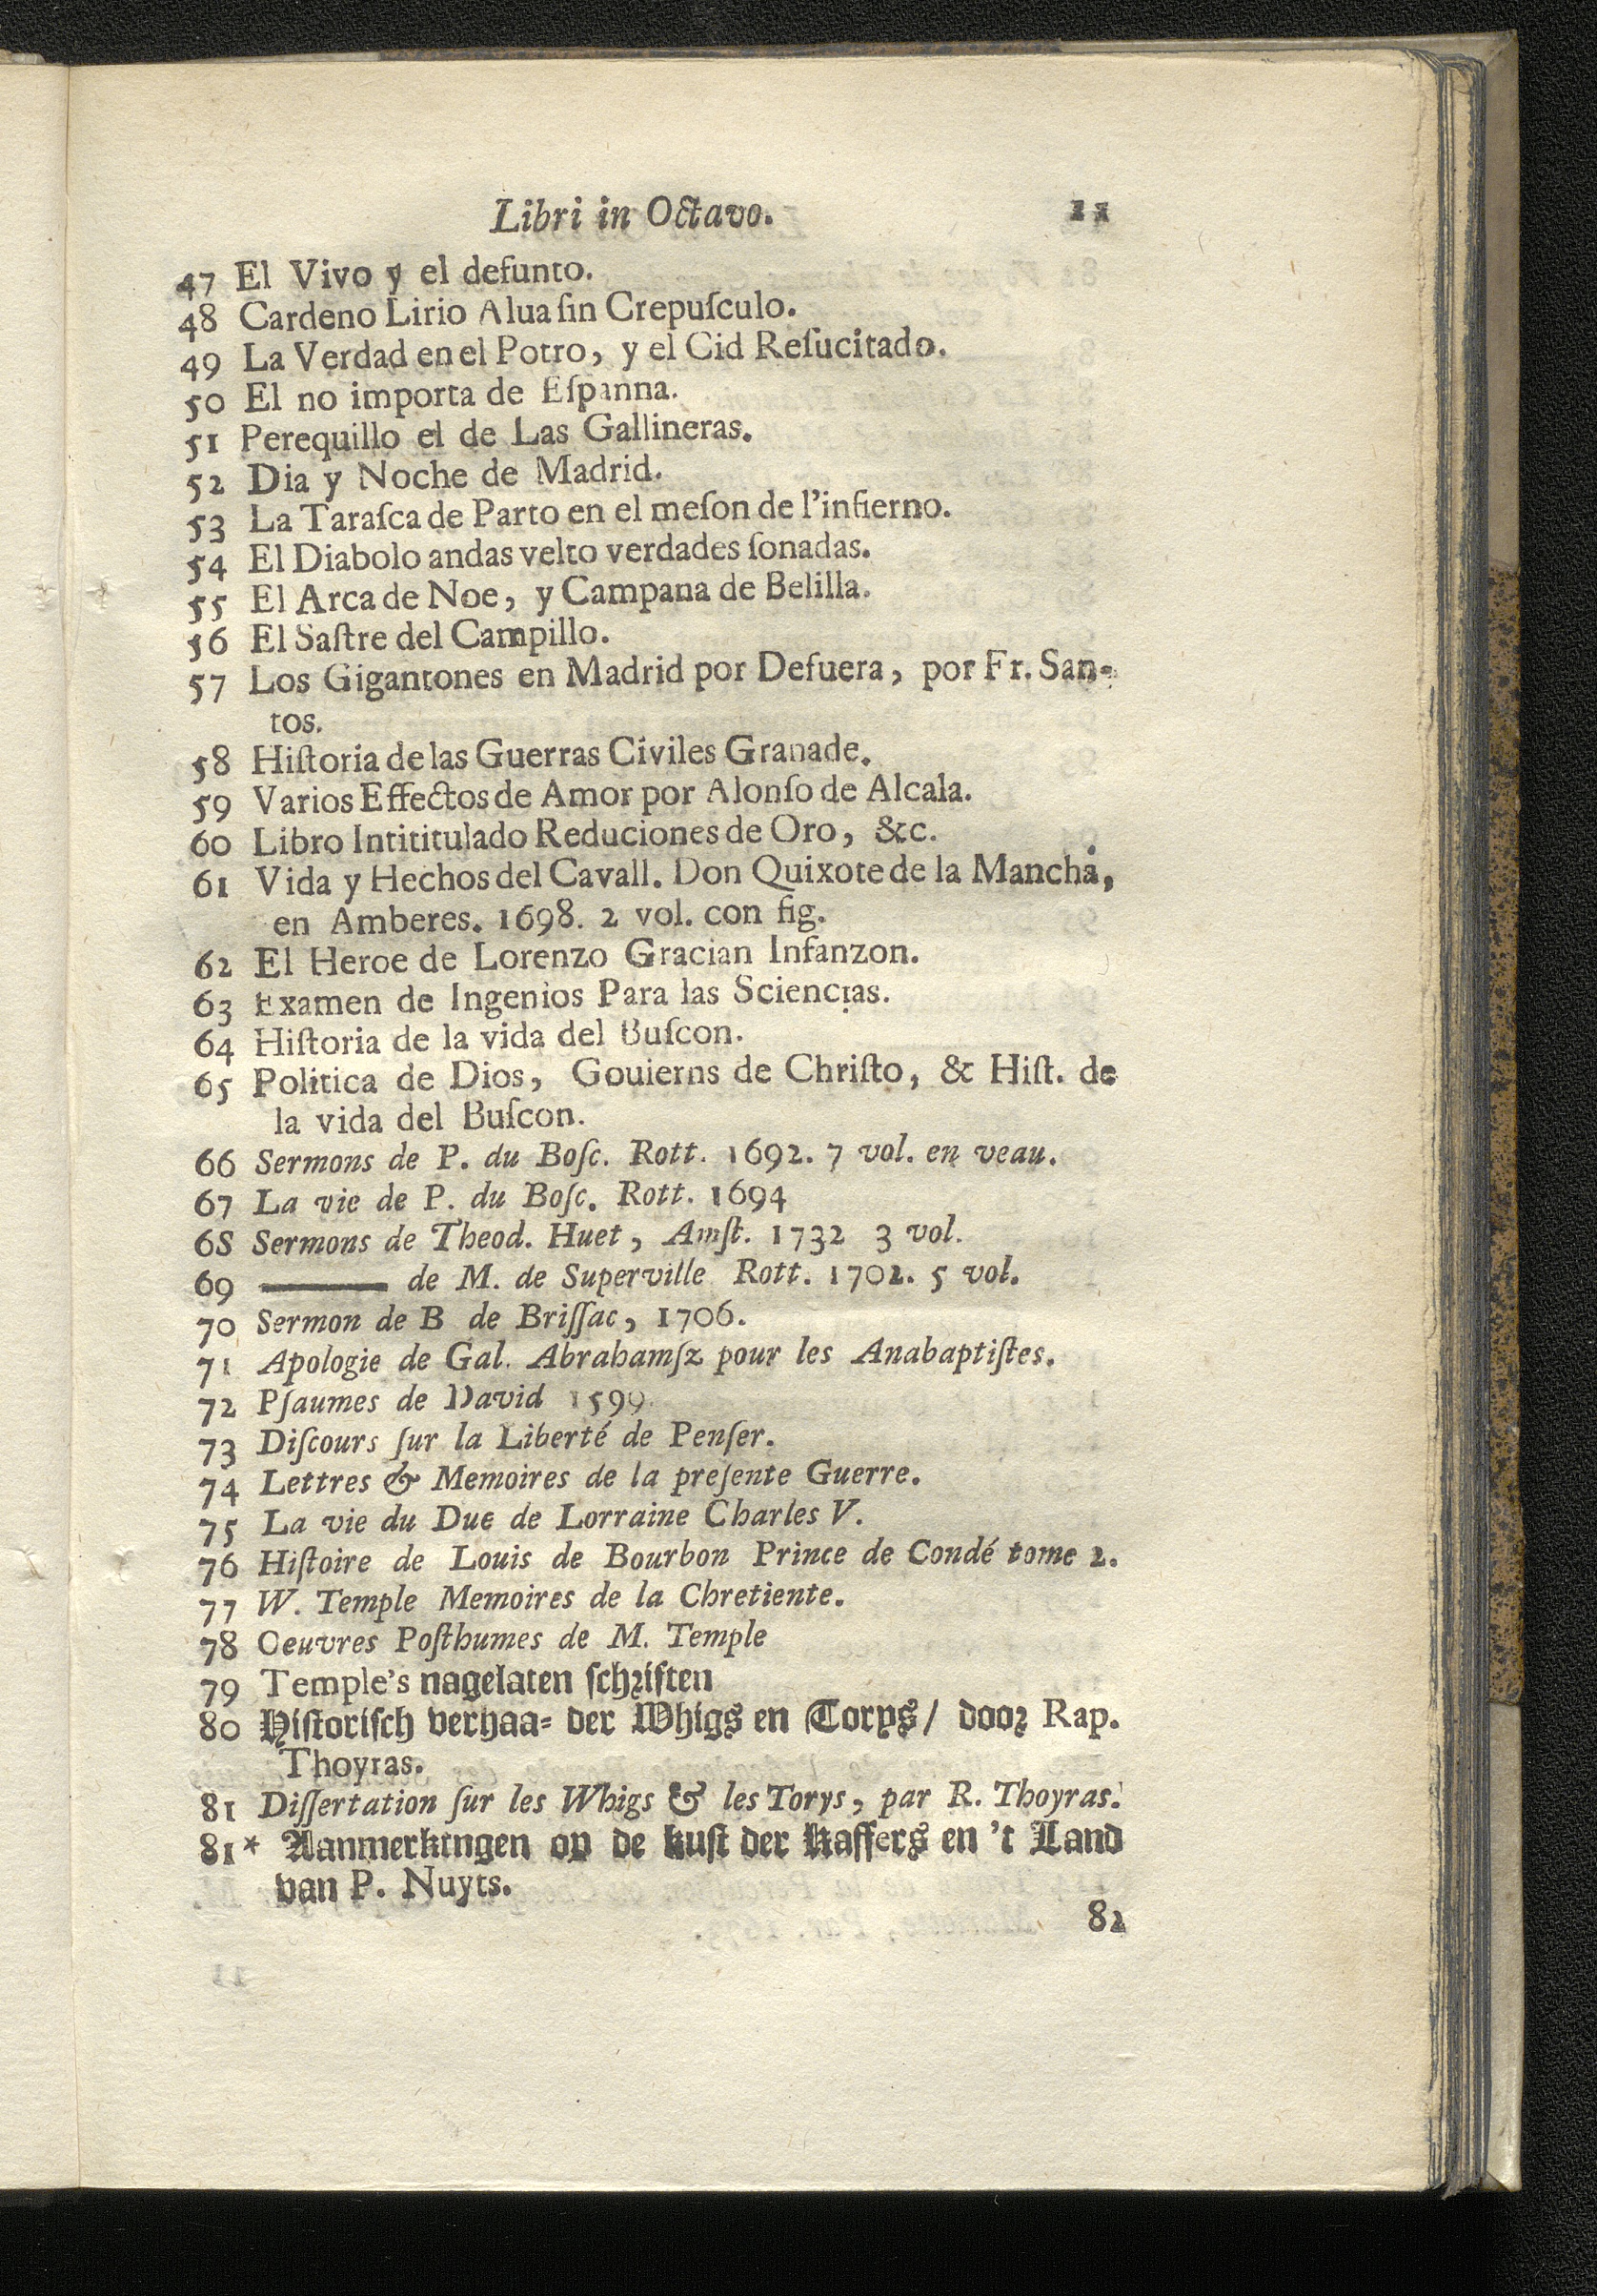 Libri in Octavo. 11
47 El Vivo y el defunto.
48 Cardeno Lirio Alua ſin Crepuſculo.
49 La Verdad en el Potro, y el Cid Reſucitado.
50 El no importa de Eſpanna.
51 Perequillo el de Las Gallineras.
52 Dia y Noche de Madrid.
53 La Taraſca de Parto en el meſon de l'infierno.
54 El Diabolo andas velto verdades ſonadas.
55 El Arca de Noe, y Campana de Belilla.
56 El Saſtre del Campillo.
57 Los Gigantones en Madrid por Defuera, por Fr. San-
tos.
58 Hiſtoria de las Guerras Civiles Granade.
59 Varios Effectos de Amor por Alonſo de Alcala.
60 Libro Intititulado Reduciones de Oro, &c.
61 Vida y Hechos del Cavall. Don Quixote de la Mancha,
en Amberes. 1698. 2 vol. con fig.
62 El Heroe de Lorenzo Gracian Infanzon.
63 Examen de Ingenios Para las Sciencias.
64 Hiſtoria de la vida del Buſcon.
65 Politica de Dios, Gouierns de Chriſto, & Hiſt. de
la vida del Buſcon.
66 Sermons de P. du Boſc. Rott. 1692. 7 vol. en veau.
67 La vie de P. du Boſc. Rott. 1694
68 Sermons de Theod. Huet, Amſt. 1732 3 vol.
69 ——— de M. de Superville Rott. 1702. 5 vol.
70 Sermon de B de Briſſac, 1706.
71 Apologie de Gal. Abrahamſz pour les Anabaptiſtes.
72 Pſaumes de David 1599.
73 Diſcours ſur la Liberté de Penſer.
74 Lettres & Memoires de la preſente Guerre.
75 La vie du Due de Lorraine Charles V.
76 Hiſtoire de Louis de Bourbon Prince de Condé tome 2.
77 W. Temple Memoires de la Chretiente.
78 Oeuvres Poſthumes de M. Temple
79 Temple's nagelaten ſchriften
80 Hiſtoriſch verhaa= der Whigs en Torys / door Rap.
Thoyras.
81 Diſſertation ſur les Whigs & les Torys, par R. Thoyras.
81* Aanmerkingen op de kuſt der Kaffers en 't Land
van P. Nuyts.
82